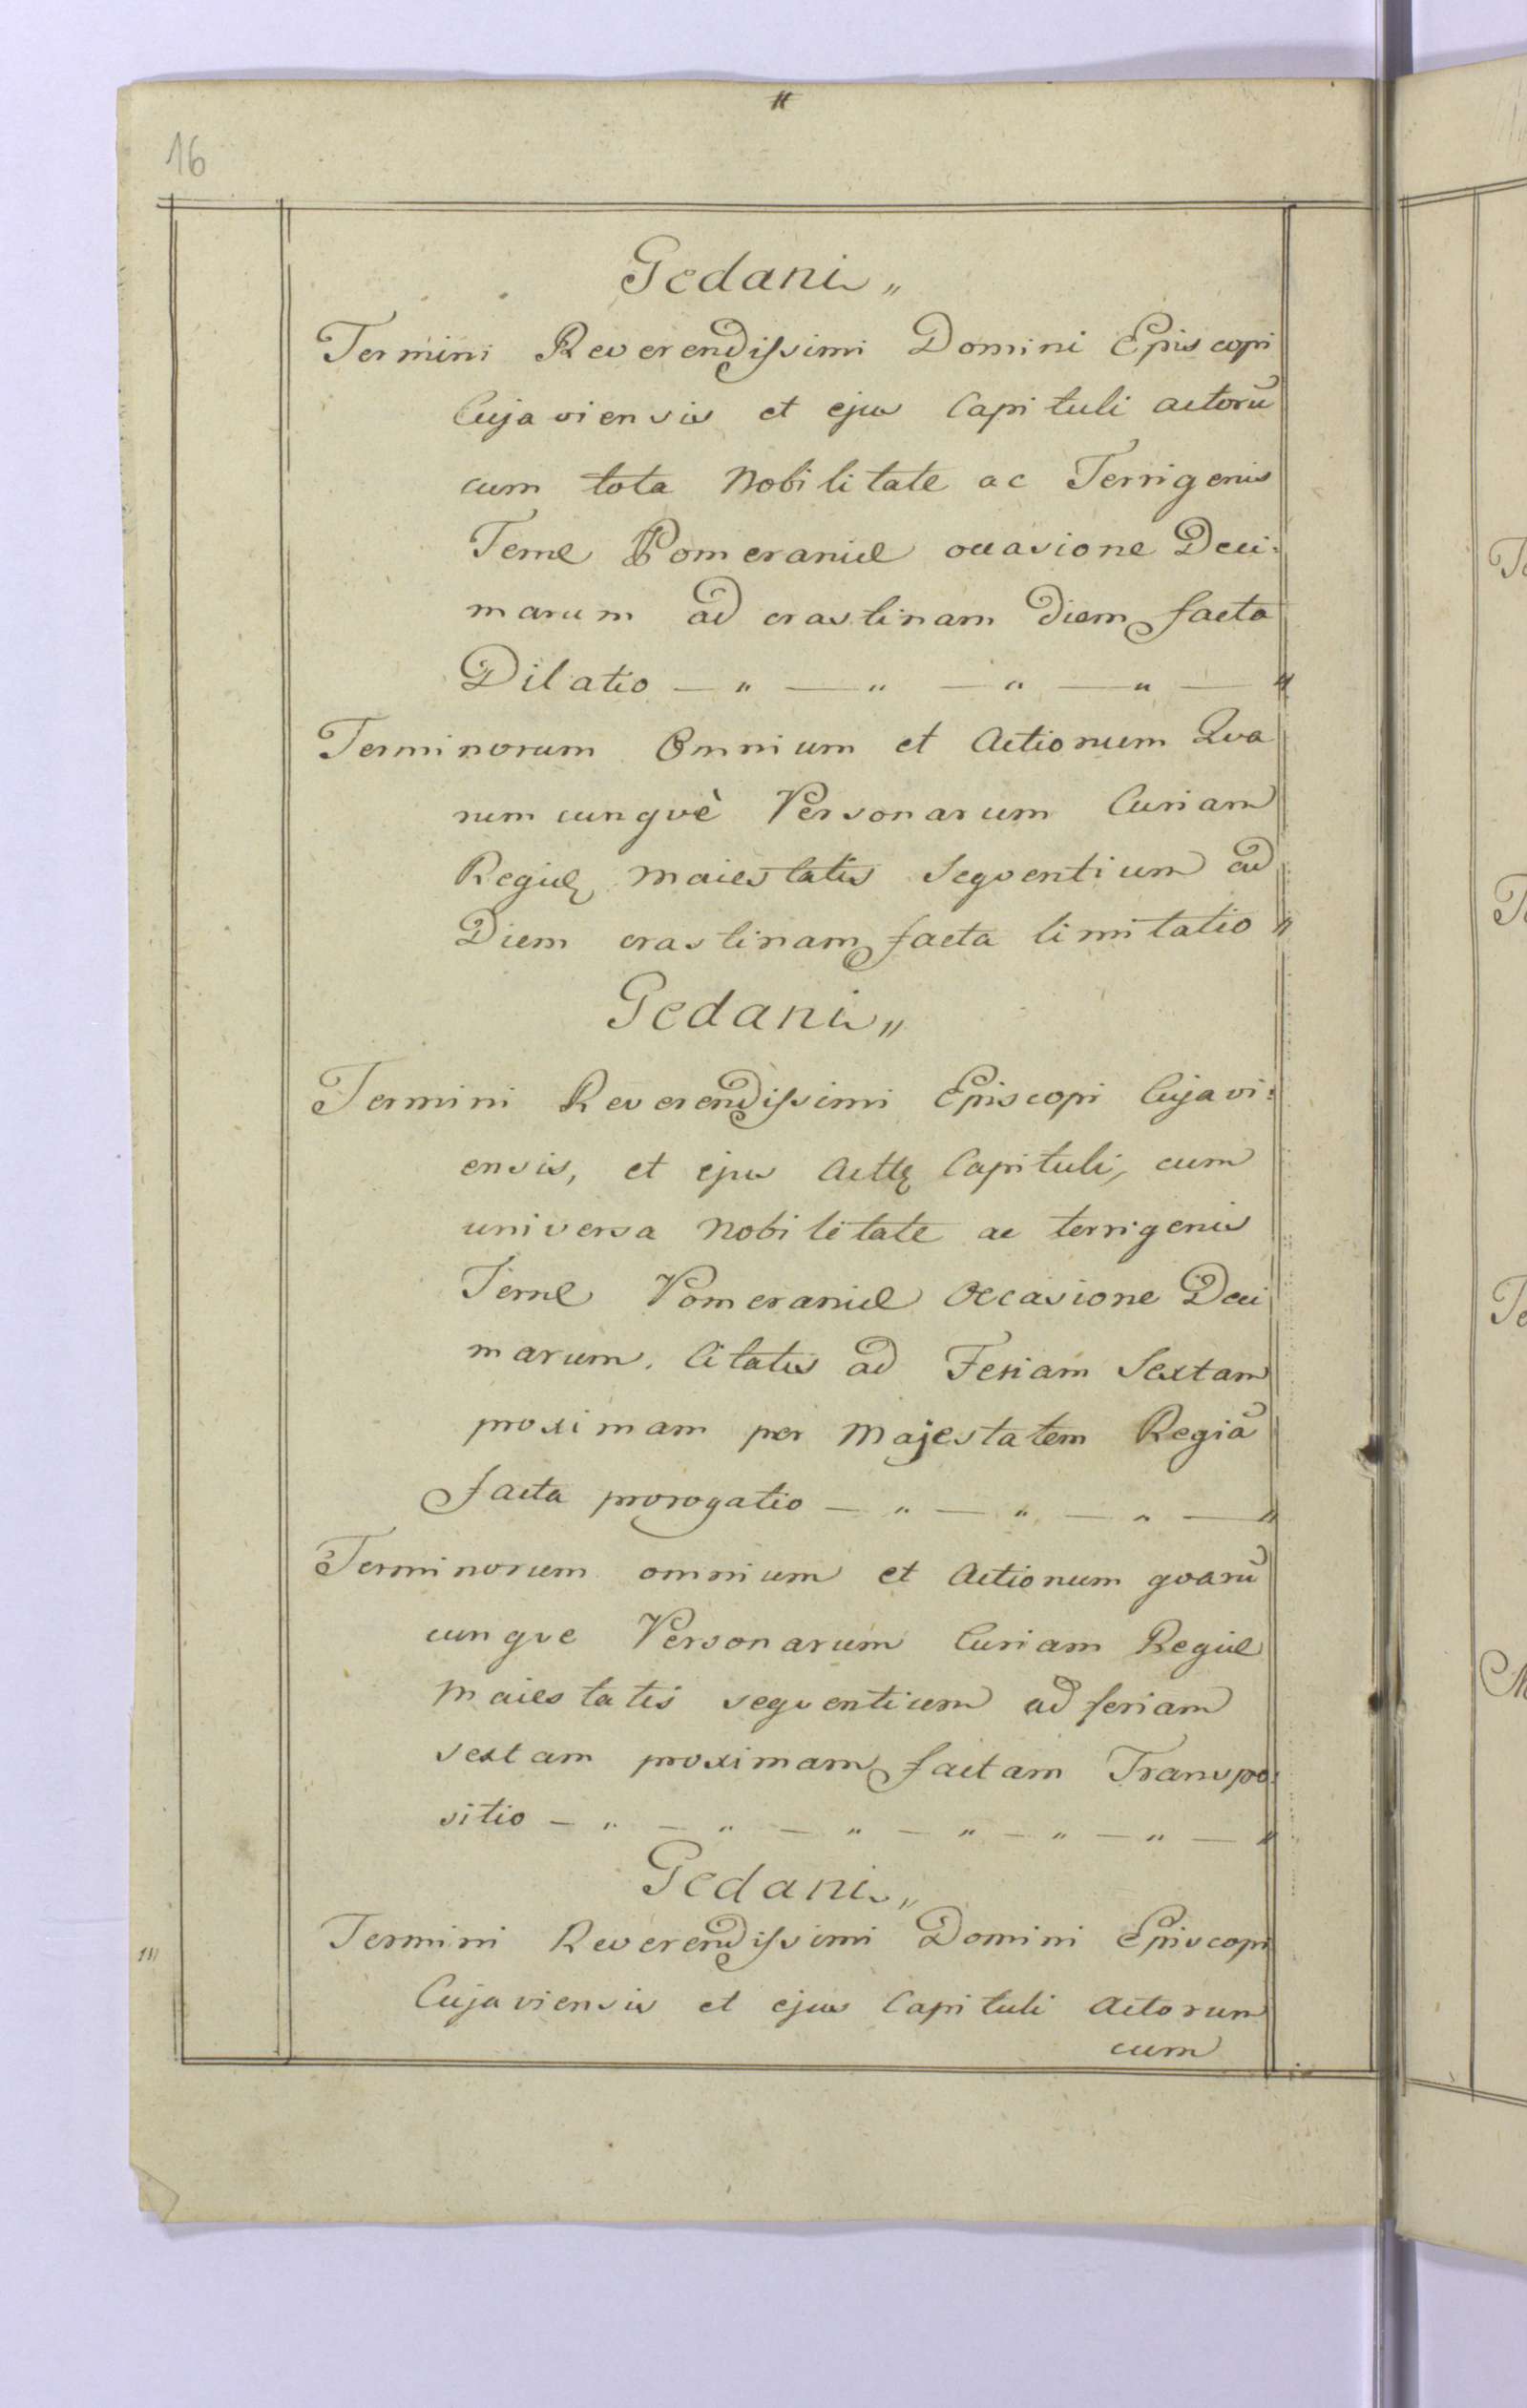 16
Gedani „
Termini Reverendissimi Domini Episcopi
Cujaviensis et ejus Capituli actorū
cum tota Nobilitate ac Terrigenis
Terræ Pomeraniæ occasione Deci:
marum ad crastinam Diem facta
Dilatio — „ — „ — „ — „ — „
Terminorum Omnium et Actionum Qva
rumcunqvè Personarum Curiam
Regiæ Maiestatis Seqventium ad
Diem crastinam facta limitatio „
Gedani „
Termini Reverendissimi Episcopi Cujavi:
ensis, et ejus Capituli, cum
universa Nobilitate ac terrigenis
Terræ Pomeraniæ Occasione Deci
marum. Citatis ad Feriam Sextam
proximam per Majestatem Regiā
facta prorogatio — „ — „ — „ — „
Terminorum omnium et Actionum qvarū
cunqve Personarum Curiam Regiæ
Maiestatis seqventium ad feriam
sextam proximam factam Transpo:
sitio — „ — „ — „ — „ — „ — „ — „
Gedani „
Termini Reverendissimi Domini Episcopi
Cujaviensis et ejus Capituli Actorum
cum